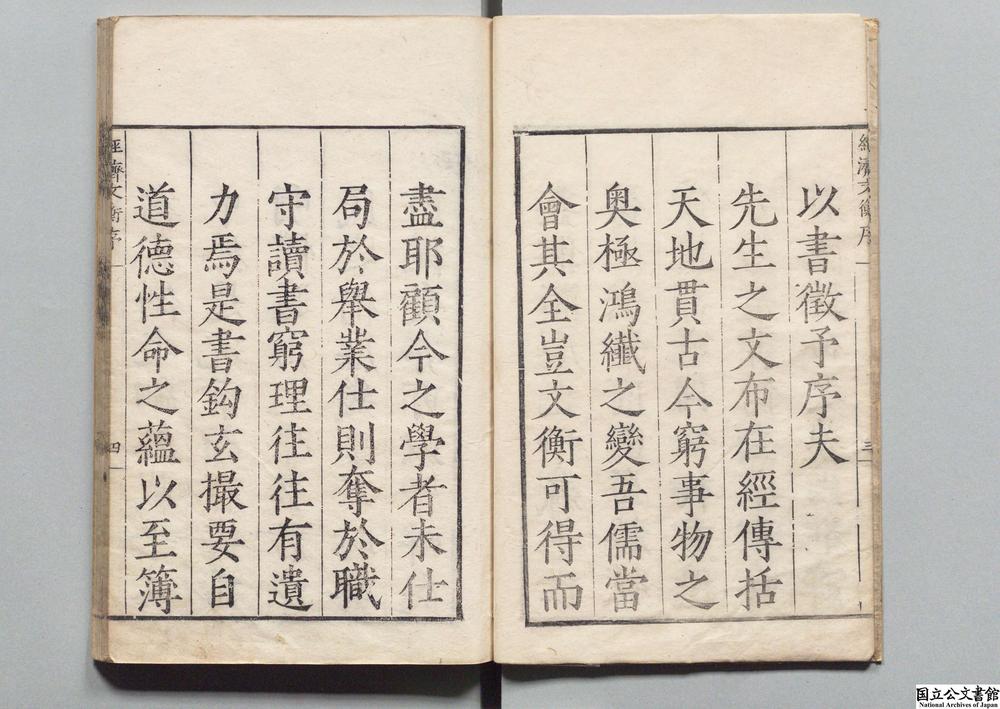 經濟文衡序
三
以書徵予序夫
先生之文布在經傳括
天地貫古今窮事物之
奥極鴻纖之變吾儒當
會其全豈文衡可得而
盡耶顧今之學者未仕
局於舉業仕則奪於職
守讀書窮理往往有遺
力焉是書鈎玄撮要自
道德性命之蘊以至簿
經濟文衡序
四
国立公文書館
National Archives of Japan